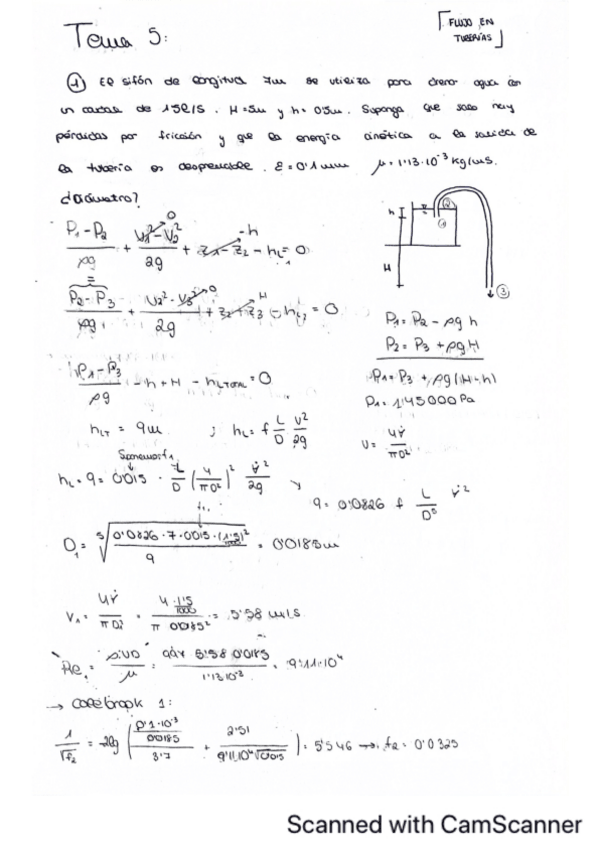 Tema 5:
FLUJO EN
TUBERÍAS
① El sifón de longitud 7m se utiliza para drenar agua con
un caudal de 1'5 l/s. H=5m y h=0'5m. Suponga que solo hay
pérdidas por fricción y que la energía cinética a la salida de
la tubería es despreciable. ε=0'1mm μ=1'13·10⁻³ kg/ms.
¿Diámetro?
(P₁-P₂)/ρg + (V₁²-V₂²)/2g + z₁-z₂ - hL₁ = 0
0
-h
(P₂-P₃)/ρg + (V₂²-V₃²)/2g + z₂-z₃ - hL₂ = 0
0
H
(P₁-P₃)/ρg - h + H - hLTOTAL = 0
hLT = 9m ; hL = f L/D V²/2g
h
H
①
②
③
P₁ = P₂ - ρgh
P₂ = P₃ + ρgH
P₁ = P₃ + ρg(H-h)
P₁ = 145000 Pa
V = 4V̇/πD²
Suponemos f₁
hL = 9 = 0'015 · L/D (4/πD²)² V̇²/2g
9 = 0'0826 f L/D⁵ V̇²
f₁
D₁ = ⁵√(0'0826·7·0'015·(1'5/1000)²/9) = 0'0185m
V₁ = 4V̇/πD² = (4·1'5/1000)/(π 0'0185²) = 5'58 m/s
Re₁ = ρVD/μ = 998 5'58 0'0185/1'13·10⁻³ = 9'11·10⁴
→ Colebrook 1:
1/√f₂ = -2log((0'1·10⁻³/0'0185)/3'7 + 2'51/(9'11·10⁴√0'015)) = 5'546 → f₂ = 0'0325
Scanned with CamScanner